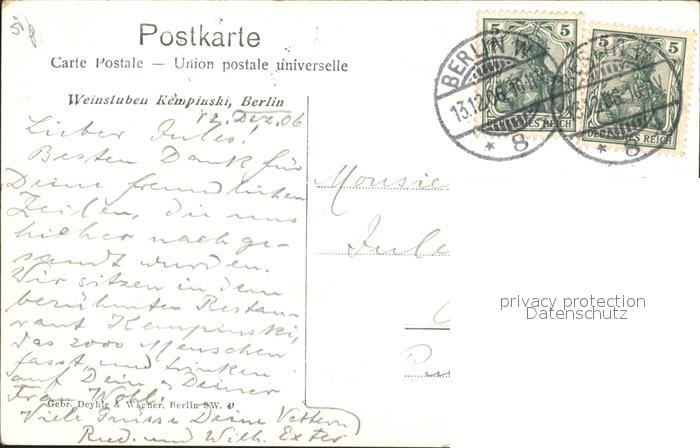 58
Postkarte
Carte Postale — Union postale universelle
Weinstuben Kempinski, Berlin
12. Dez. 06
Lieber Jules!
Besten Dank für
Deine freundlichen
Zeilen, die uns
hieher nachge-
sandt wurden.
Wir sitzen in dem
berühmten Restau-
rant Kempinski,
das 2000 Menschen
fasst und trinken
auf Dein & Deiner
Frau Wohl.
Gebr. Deyhle & Wagner, Berlin SW. 4
Viele Grüsse Deine Vettern
und Wilh.
BERLIN W.
13.12.06
* 8
5 5
DEUTSCHES REICH
5 5
DEUTSCHES REICH
Monsie
Jule
privacy protection
Datenschutz